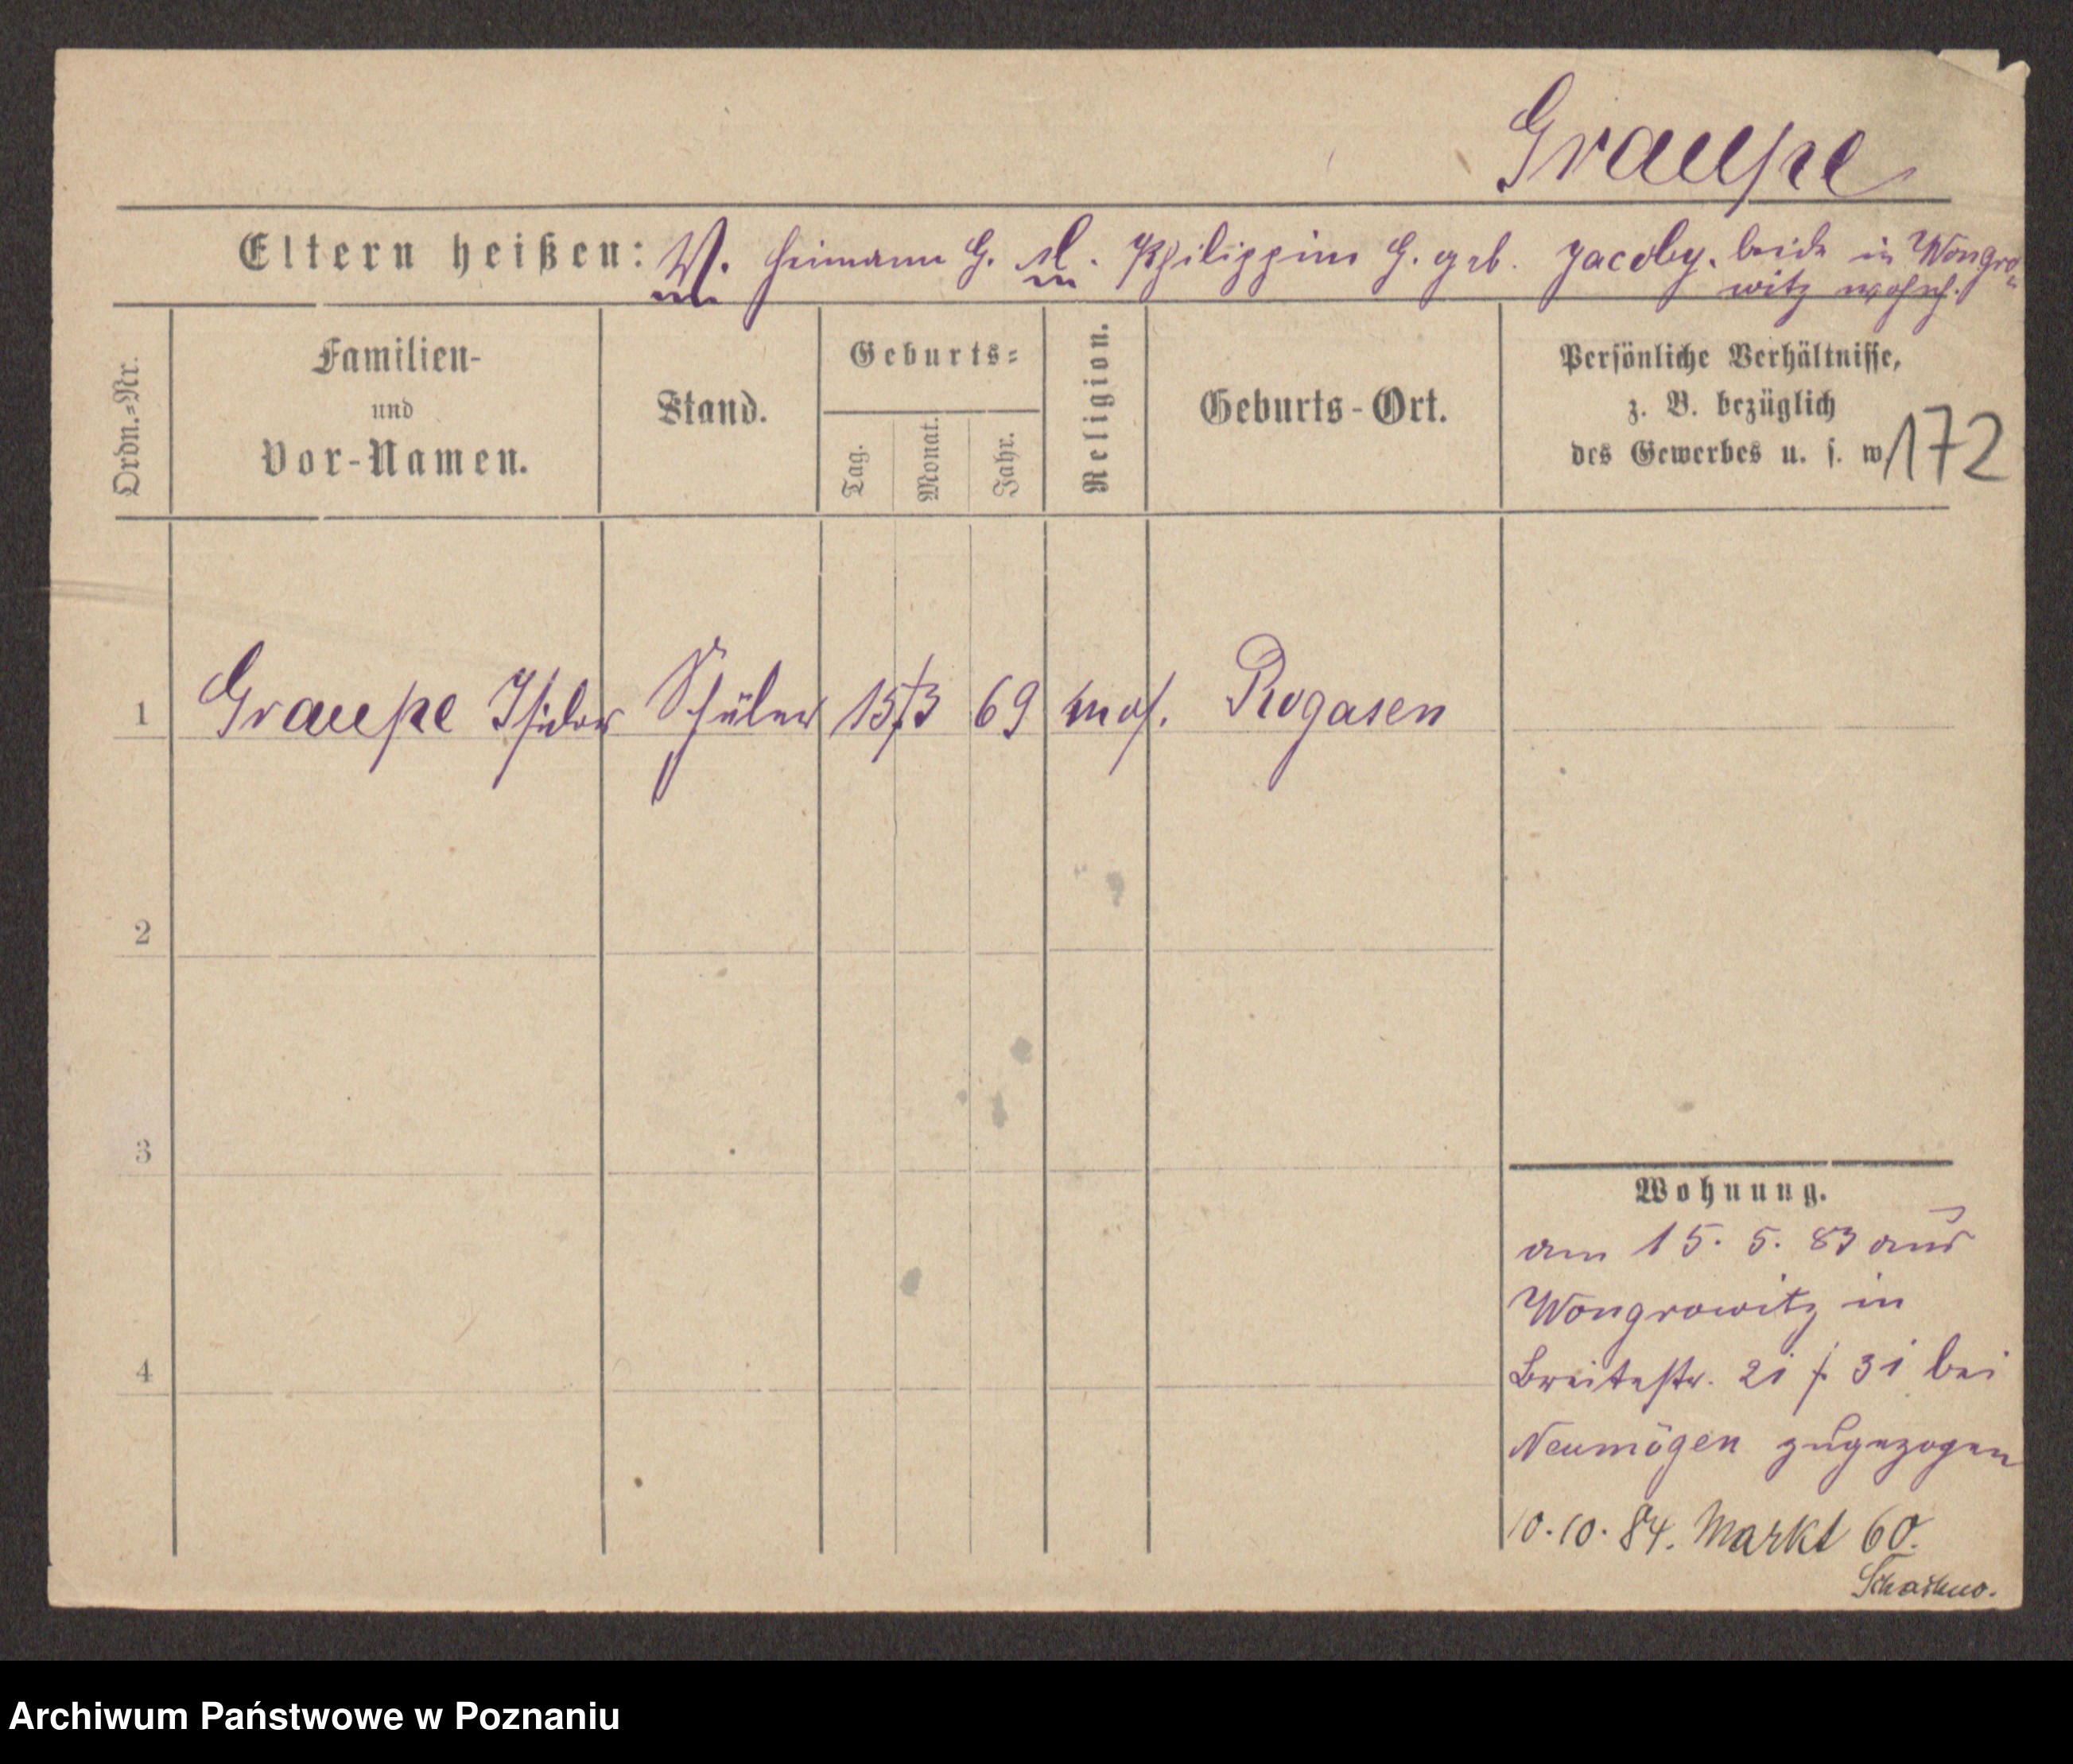 Graupe
Eltern heißen: V. Heimann G. M. Philippine G. geb. Jacoby. beide in Wongro-
witz wohnh.
Ordn.=Nr.
Familien-
und
Vor-Namen.
Stand.
Geburts=
Tag.
Monat.
Jahr.
Religion.
Geburts-Ort.
Persönliche Verhältnisse,
z. B. bezüglich
des Gewerbes u. s. w
172
1 Graupe Isidor Schüler 15/3 69 mos. Rogasen
2
3
4
Wohnung.
am 15. 5. 83 aus
Wongrowitz in
Breitestr. 21 31 bei
Neumögen zugezogen
10.10.84. Markt 60.
Archiwum Państwowe w Poznaniu